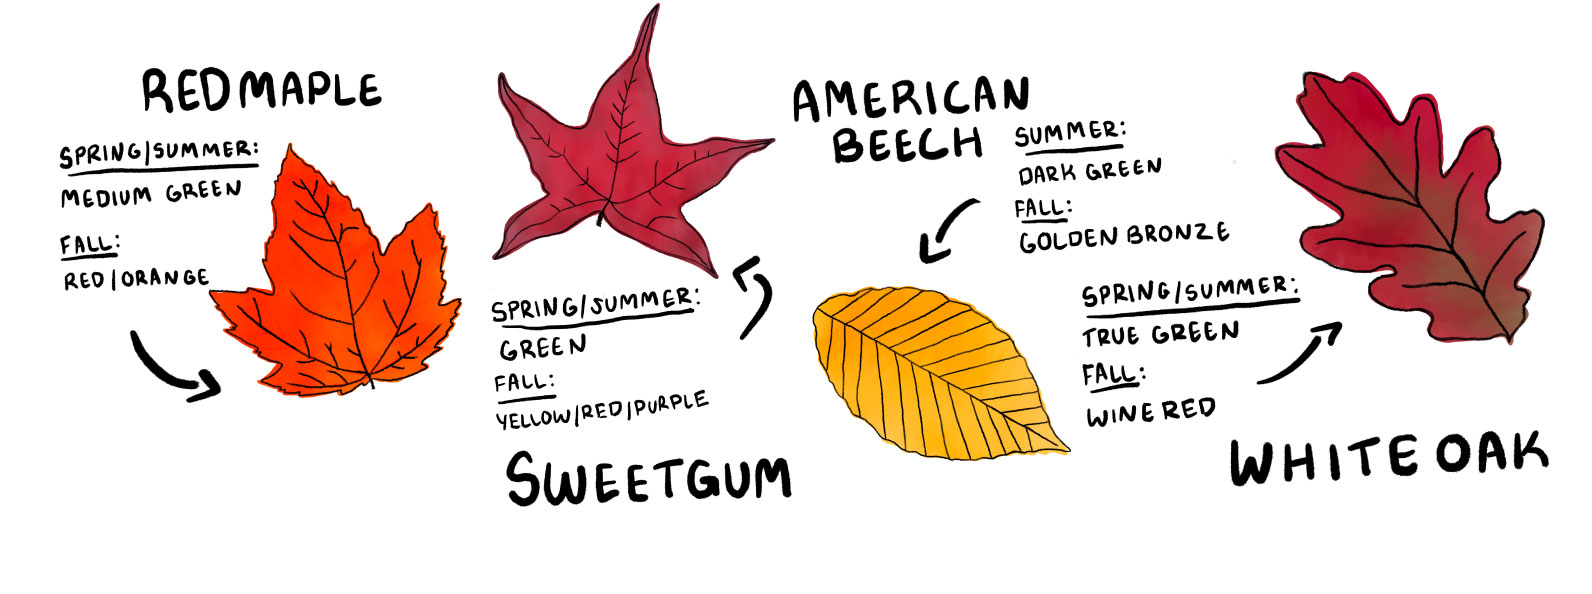 RED MAPLE
SPRING/SUMMER:
MEDIUM GREEN
FALL:
RED/ORANGE
SPRING/SUMMER:
GREEN
FALL:
YELLOW/RED/PURPLE
SWEETGUM
AMERICAN
BEECH
SUMMER:
DARK GREEN
FALL:
GOLDEN BRONZE
SPRING/SUMMER:
TRUE GREEN
FALL:
WINE RED
WHITE OAK